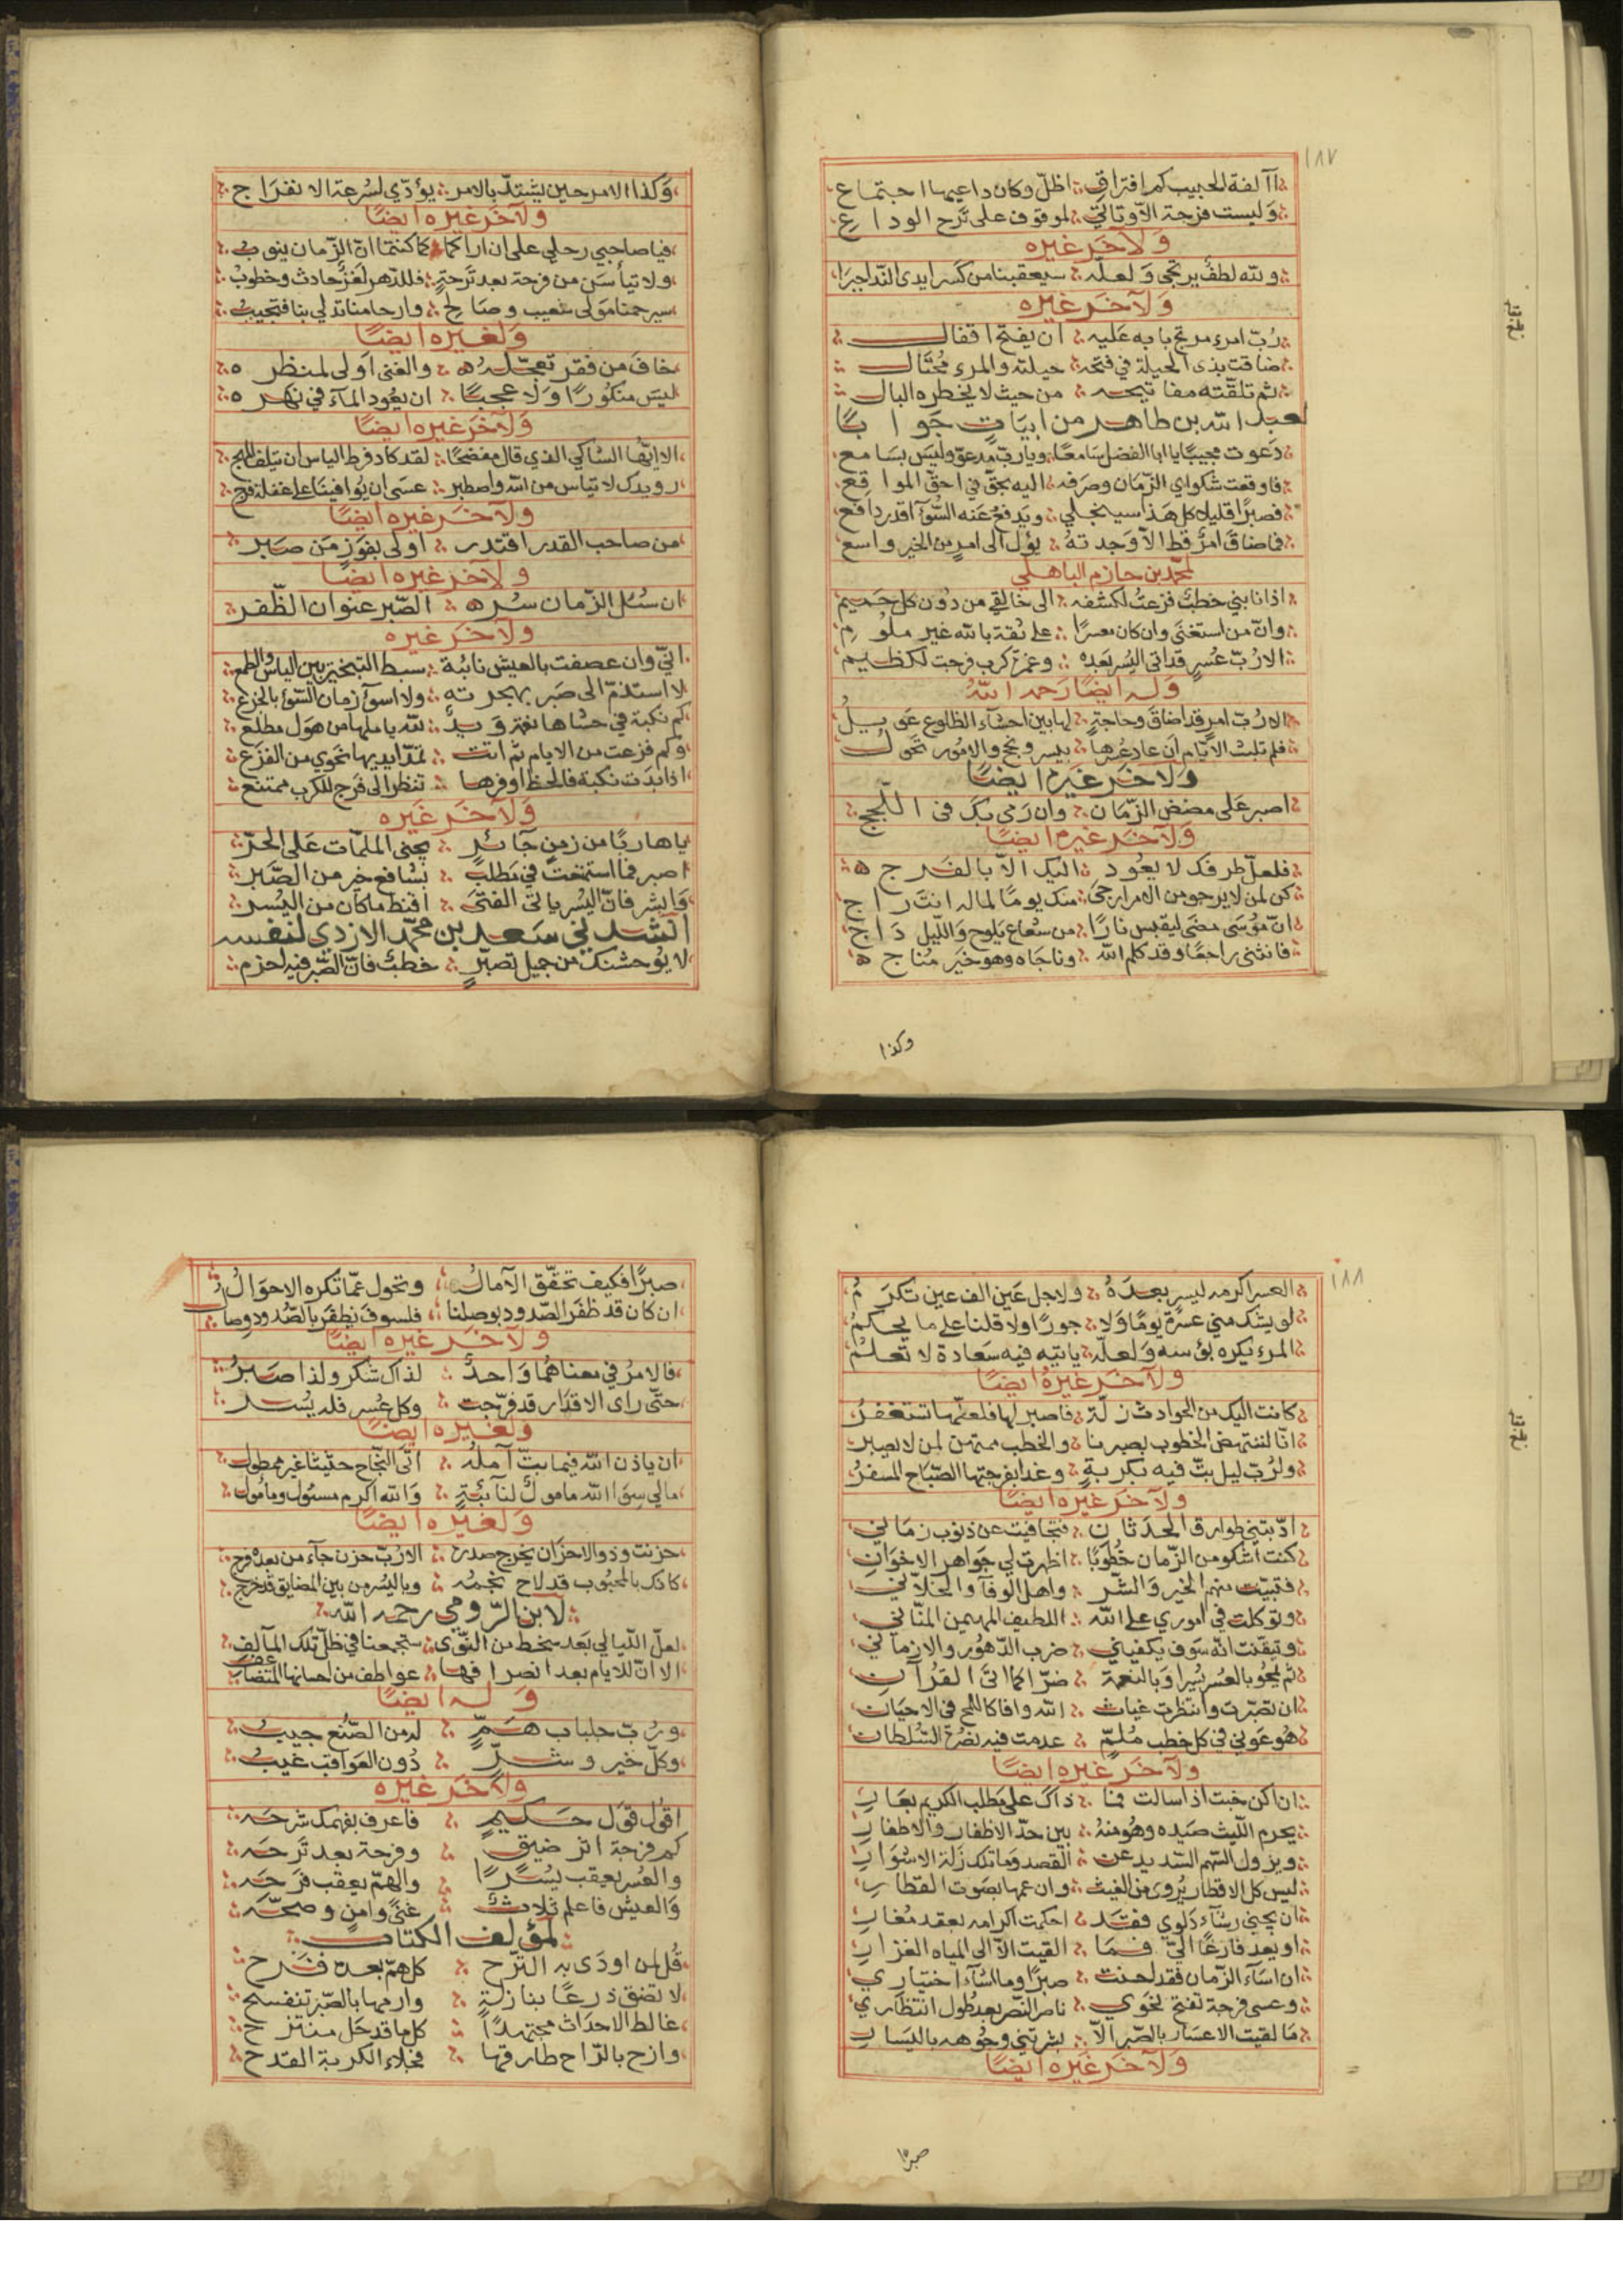 ١٨٧
أآلفة الحبيب كم افتراق اظلّ وكان داعيها اجتماع
وليست فرحة الاوبات الّا لموقوف على تَرح الوداع
وَلآخَر غيره
ولله لطفٌ يرتجى وَلعلّه سيعقبنا من كسر ايدى الندا جبرا
وَلآخَر غيره
رُبّ امرء مرتج بابه عَليه ان يفتح اقفال
ضاقت بذى الحيلة في فتحه حيلته والمرء مُحتَال
ثم تلقّته مفاتيحه من حيث لا يخطره البال
لعبد الله بن طاهر من ابيَاتٍ جَوابًا
دَعوت مجيبًا يا ابا الفضل سَامعًا ويا ربّ مدعوّ وليسَ بسَامع
فاوقعت شكواي الزّمان وصَرفه اليه بحقّ في احقّ المواقع
فصبرًا قليلا كل هَذا سينجلي ويَدفع عَنه السُّوء اقدر دَافع
فما ضاقَ امرٌ قط الّا وَجدته يؤل الى امر من الخير واسع
لمحمّد بن حازم الباهلي
اذا نابني خطبٌ فزعتُ لكشفه الى خالقي من دُون كل حَميم
وانّ من استغنَى وان كان معسرًا على ثقة بالله غير ملوُم
الا رُبّ عُسرٍ قد اتى اليُسر بَعده وغمرة كرب فرجت لكظيم
وَله ايضًا رَحمه اللّهُ
الا رُبّ امرٍ قد اضاقَ وحاجةٍ لها بين احشآء الظلوع عَويلُ
فلم تلبث الايّام ان عادَ عُسرها بيسر ونجح والامُور تحَولُ
وَلآخَر غيَره ايضًا
اصبر عَلى مضض الزّمان وان رَمى بكَ في اللّجج
وَلآخَر غيره ايضًا
فلعلّ طرفك لا يعُود اليك الاّ بالفَرج
كن لمن لا يرجو من الامر ارجى منك يومًا لما له انت راج
انّ مُوسَى مضَى ليقبس نارًا من شعاع يلوح وَاللّيل دَاج
فانثنى راجعًا وقد كلم اللّه وناجَاه وهو خيَر مُنَاج
وكذا
وَكذا الامر حين يشتدّ بالامر يؤدّي لسُرعة الانفرَاج
ولآخَر غيره ايضًا
فيا صاحبي رحلي على ان اراكما كما كنتما انّ الزّمان ينوبُ
ولا تيأسَن من فرحة بعد تَرحةٍ فللدّهر حادث وخطوبُ
سيرحمنا مَولى شعيب وصَالح وارحامنا تدلي بنا فتجيبُ
وَلغَيره ايضًا
خافَ من فقر تعجّله والغنى اَولى لمنظره
ليسَ منكُورًا وَلا عَجبًا ان يعُود المآء في نهره
وَلآخَر غيره ايضًا
الا ايّها الشاكي الذي قال مفضحًا لقد كاد فرط الياس ان يتلف المهج
رويدك لا تياس من الله واصطبر عسَى ان يُوافينَا على غفلة فرج
ولآخَر غيره ايضًا
من صاحب القدر اقتدر اولى بفوَزٍ مَن صَبر
ولآخر غيره ايضًا
ان سئل الزّمان سُره الصّبر عنوان الظّفر
ولآخَر غيره
انيّ وان عصفت بالعيش نائبة سبط التبختر بين الياس والطمع
لا استذمّ الى صَبر بهجرته ولا اسوء زمان السّوء بالجزع
كم نكبة في حشاها لله يا ملها من هَول مطلع
وكم فزعت من الايام ثم اتت تمدّ ايديها نحوي من الفزَع
اذا بدَت نكبة فالحظ اوفرها تنظر الى فرَج للكرب ممتنع
وَلآخَر غيَره
يا هاربًا من زمنٍ جَائرٍ يجنى الملمّات عَلى الحرّ
اصبر فما استشفعتَ في مَطلبٍ بشافع خير من الصَّبر
وَابشر فانّ اليُسر ياتى الفتىَ اقنط ما كان من اليُسر
انشدني سَعد بن محمّد الازدي لنفسه
لا يوُحشنك من جميل تصبّرٍ خطبٌ فانّ الصّبر فيه احزم
١٨٨
العسر اكرمه ليسر بعدَهُ ولاجل عَين الف عين تكرَمُ
لم يشك مني عسرة يومًا وَلا جورًا ولا قلنا على ما يحكمُ
المرء يكره بؤسه وَلعلّه ياتيه فيه سَعادة لا تعلمُ
ولآخَر غيرهُ ايضًا
كانت اليك من الحوادث زلّة فاصبر لها فلعلّها تستغفرُ
انّا لنستَهض الخطوب بصبرنا والخطب ممتهن لمن لا يصبر
ولرُبّ ليل بتّ فيه بكربةٍ وغدا بفرجتها الصّباح المسفرُ
ولآخَر غيره ايضًا
ادّبتني طوارق الحَدثان فتجافيت عن ذنوب زمَاني
كنت اشكو من الزّمان خُطوبًا اظهرت لي جَواهر الاخوَانِ
فتبيّت منهم الخير وَالشّر واهل الوفآء والخلّاني
وتوكلت في اموري على الله اللطيف المهيمن المنّاني
وتيقّنت انّه سَوف يكفيني ضرب الدّهوُر والازماني
ثم يمحُو بالعسُر يُسرا وَبالنعمة ضرّا كما اتىَ القرُآنِ
ان تصبّرت وانتظرت غياث الله وافاكَ اللمح فى الاحيَانِ
هُو عَوني في كل خطب مُلمّ عدمت فيه نصُرة السُّلطان
ولآخَر غيره ايضًا
ان اكن خبت اذ اسالت فما ذاكَ على مَطلب الكريم بعَارِ
يحرم اللّيث صَيده وهُو منهُ بين حدّ الاظفار والاظفارِ
ويزول السّهم السّديد عن القصد وَما تلك زَلة الاسْوَارِ
ليس كل الاقطار يُروىَ من الغيث وان عمها بصَوت القطارِ
ان يجني رشآء دَلوي فقَد احكمت اكرامه بعقد مغارِ
او يعد فارغًا اليّ فمَا القيت الّا الى المياه الغزارِ
ان اسَآء الزّمان فقد احسَنت صبرًا وما اسَآء اختيَاري
وعسى فرحة تفتح نحوي ناصر النّصر بعد طُول انتظاري
مَا لقيت الاعسَار بالصّبر الّا بشرتني وجُوهه باليَسارِ
وَلآخَر غيَره ايضًا
صبرًا
صبرًا فكيف تحقّق الآمالُ وتحول عمّا تكره الاحوَالُ
ان كان قد ظفَر الصّدود بوصلنا فلسوفَ يظفَر بالصّدُود وصالُ
ولآخَر غيره ايضًا
فالامرُ في معناهُما وَاحدٌ لذاكَ شكر ولذا صَبرُ
حتّى راى الاقدَار قد فرّجت وكل عُسر فله يُسْر
ولغَيره ايضًا
ان ياذن الله فيما بتّ آمله اتَى النّجاح حثيثا غير ممطول
مالي سِوَا اللّه مامولٌ لنآئبةٍ وَالله اكرم مسئول ومامُول
وَلغيره ايضًا
حزنت وذو الاحزَان يخرج صدره الا رُبّ حزن جآء من بعده فرج
كاذك بالمحبُوب قد لاح نجمُه وباليسُر من بين المضايق قد خرج
لابن الرّومي رحمه اللّه
لعلّ اللّيالي بعَد سخط من النّوَى ستجمعنا في ظلّ تلك المآلف
الا انّ للايام بعد انصرافها عواطف من احسانها المتضاعف
وَله ايضًا
ورُبّ جلباب هَمٍّ له من الصّنع جيبُ
وكلّ خير وشرٍّ دُون العَواقب غيبُ
ولآخَر غيره
اقوُل قوَل حَكيمٍ فاعرف بفهمك شرحَه
كم فرجة اثر ضيق وفرحة بعد تَرحَه
والعُسر يعقب يُسرًا والهمّ يعقب فرَحَه
وَالعيش فاعلم ثلاثٌ غنىً وامنٍ وصحّه
لمؤلف الكتاب
قُل لمن اودَى به التّرَح كل همّ بعده فَرَح
لا تضق ذرعًا بنازلةٍ وارمها بالصّبر تنفسح
غالط الاحدَاث مجتهدًا كل ما قد حَل منتزح
وازح بالرّاح طارقها فجلاء الكربة القدح